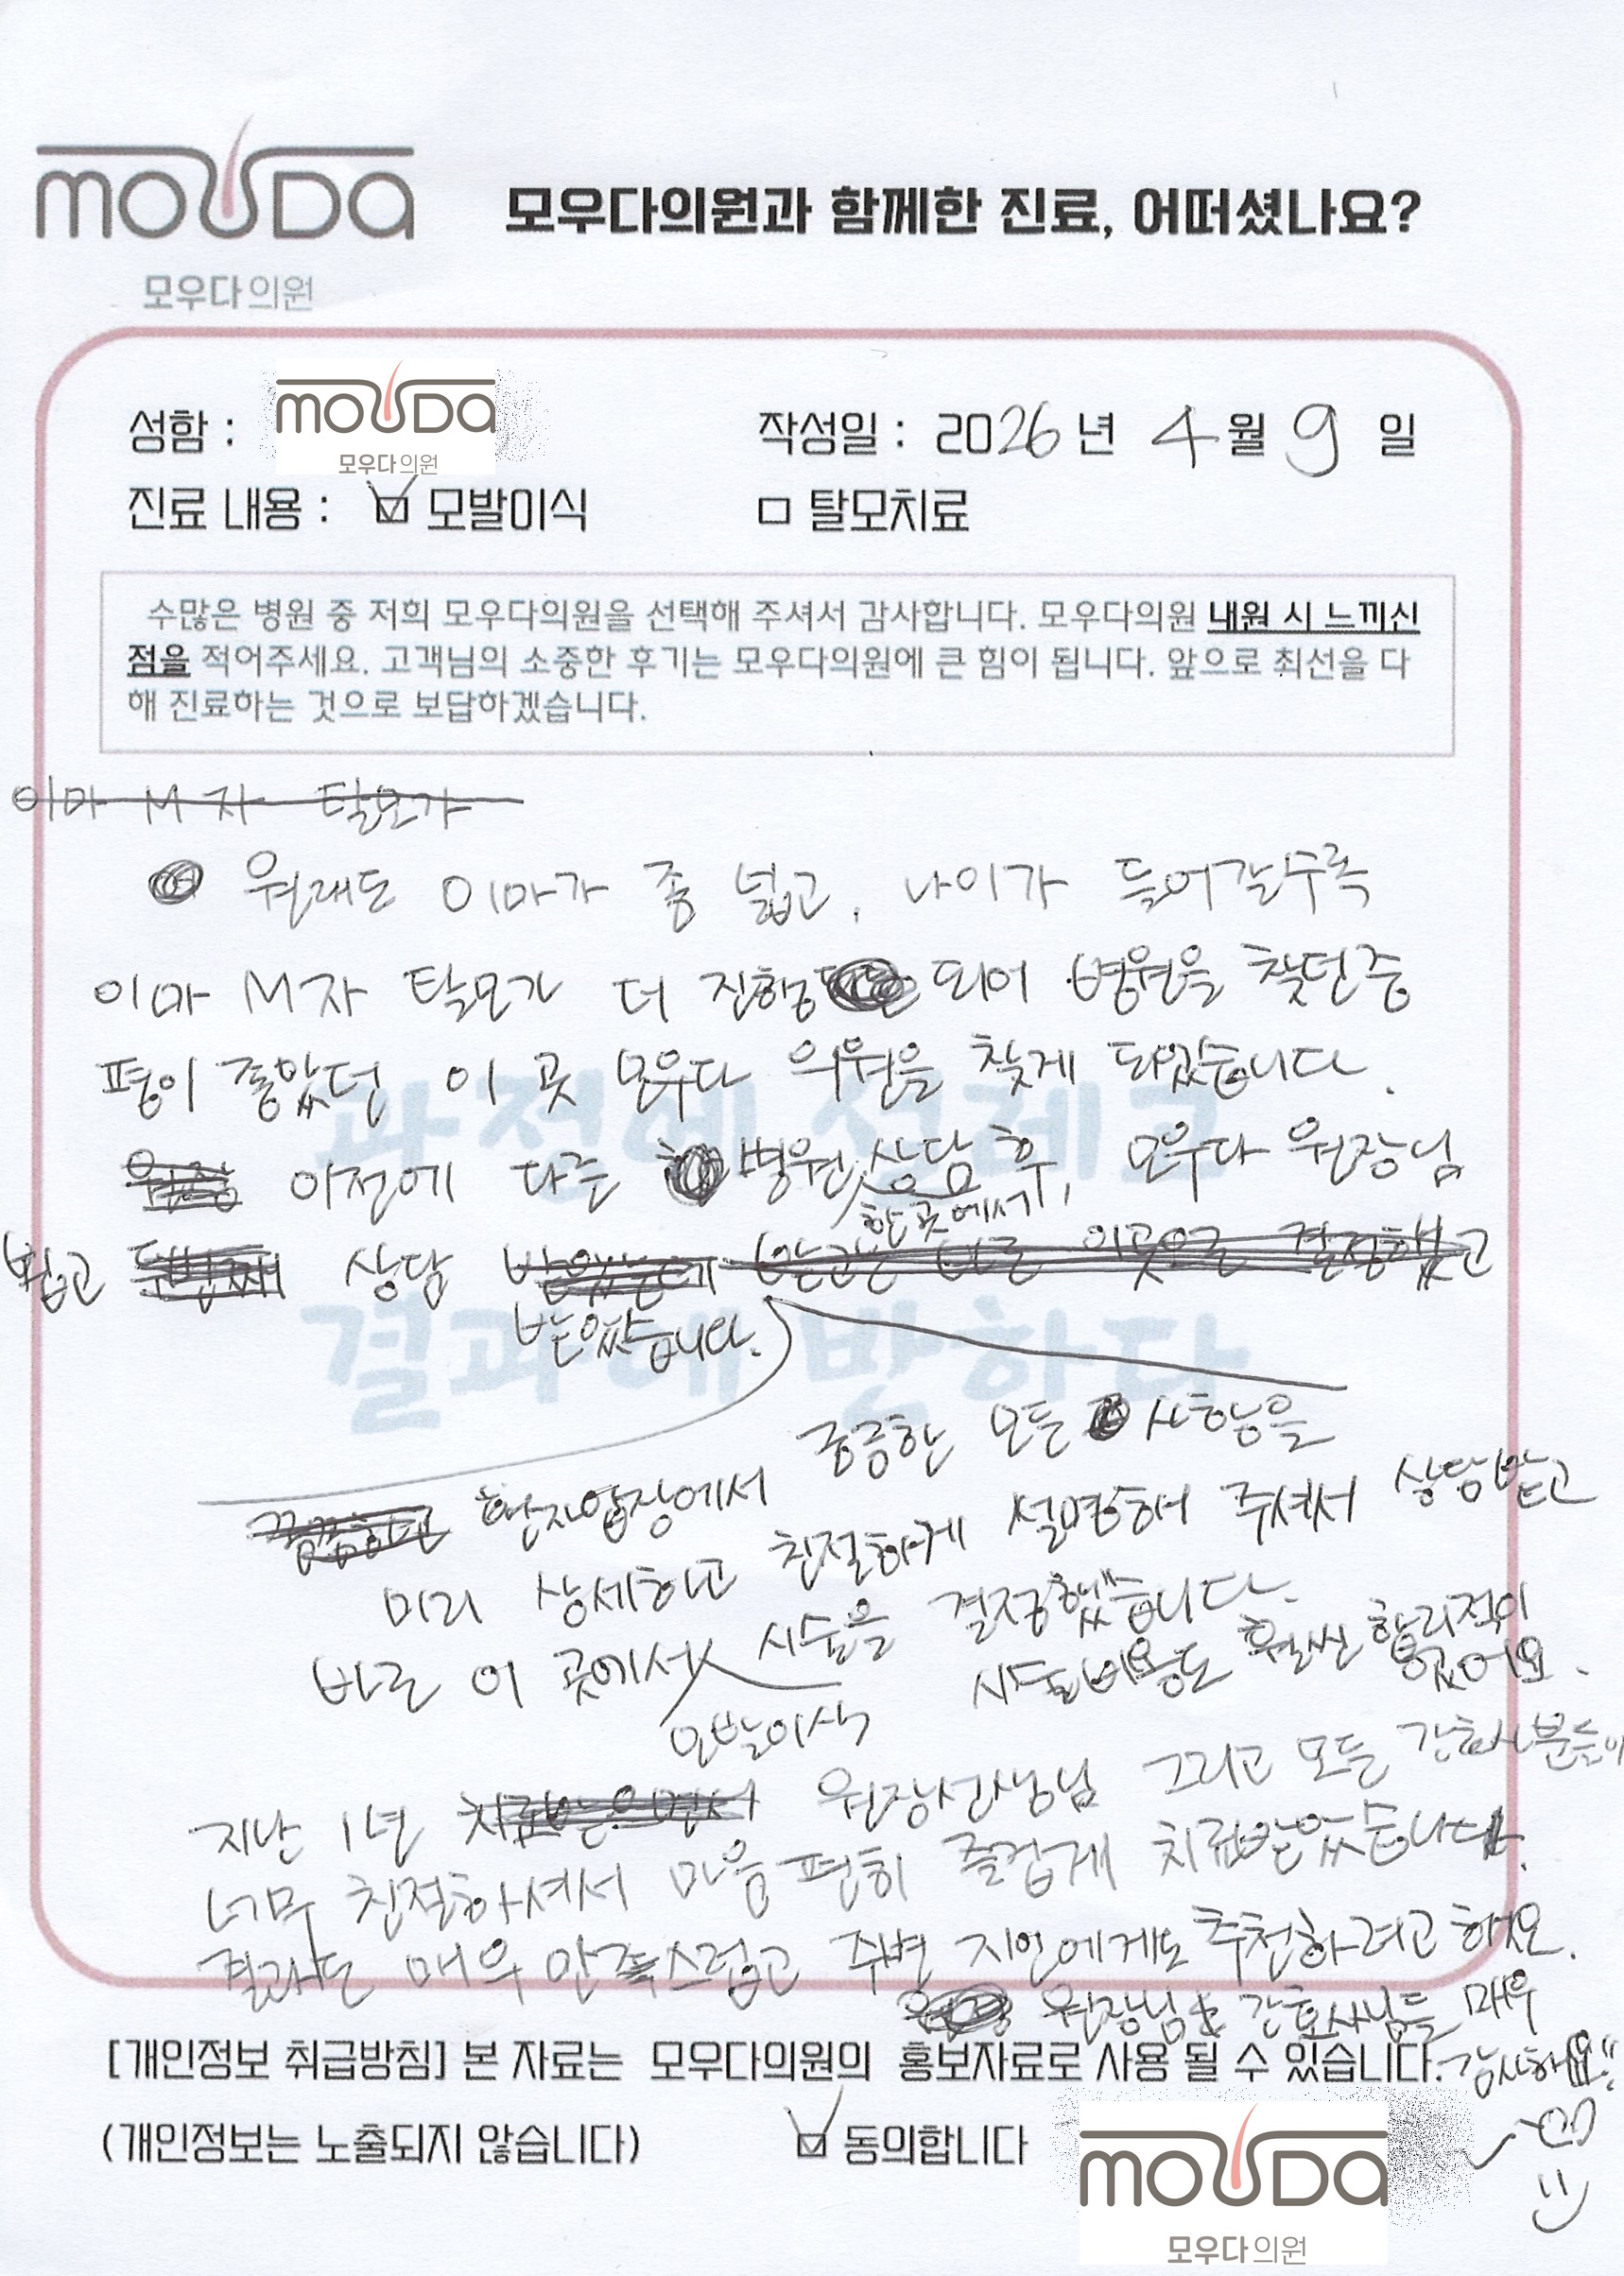 mouda
모우다의원
모우다의원과 함께한 진료, 어떠셨나요?
성함 : mouda 모우다의원
작성일 : 2026년 4월 9일
진료 내용 : ☑ 모발이식 □ 탈모치료
수많은 병원 중 저희 모우다의원을 선택해 주셔서 감사합니다. 모우다의원 내원 시 느끼신
점을 적어주세요. 고객님의 소중한 후기는 모우다의원에 큰 힘이 됩니다. 앞으로 최선을 다
해 진료하는 것으로 보답하겠습니다.
이마 M자 탈모가
원래도 이마가 좀 넓고, 나이가 들어갈수록
이마 M자 탈모가 더 진행 되어 병원을 찾던중
평이 좋았던 이 곳 모우다 의원을 찾게 되었습니다.
이전에 다른 병원 한 곳에서 상담 후, 모우다 원장님
뵙고 상담
받았습니다.
궁금한 모든 사항을
환자입장에서
미리 상세하고 친절하게 설명해 주셔서 상담받고
바로 이 곳에서 모발이식 시술을 결정했습니다.
시술비용도 훨씬 합리적이
였어요.
지난 1년 원장선생님 그리고 모든 간호사분들이
너무 친절하셔서 마음 편히 즐겁게 치료받았습니다.
결과도 매우 만족스럽고 주변 지인에게도 추천하려고 해요.
원장님 & 간호사님들 매우
감사해요!!
과정에 설레고
결과에 반하다
[개인정보 취급방침] 본 자료는 모우다의원의 홍보자료로 사용 될 수 있습니다.
(개인정보는 노출되지 않습니다) ☑ 동의합니다
mouda
모우다의원